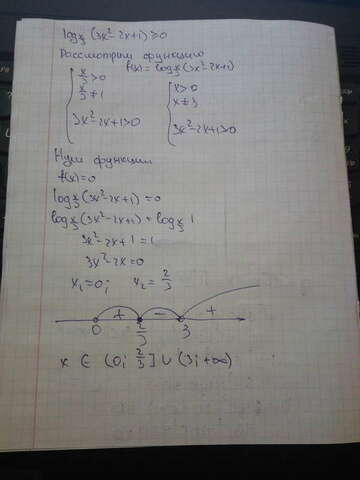 log x/3 (3x²-2x+1) ≥0
Рассмотрим функцию
f(x) = log x/3 (3x²-2x+1)
{ x/3 >0
x/3 ≠1
3x²-2x+1>0
{ x>0
x≠3
3x²-2x+1>0
Нули функции
f(x)=0
log x/3 (3x²-2x+1) = 0
log x/3 (3x²-2x+1) = log x/3 1
3x²-2x+1 = 1
3x²-2x=0
x₁=0; x₂= 2/3
+ - +
0 2/3 3
x ∈ (0; 2/3] ∪ (3; +∞)